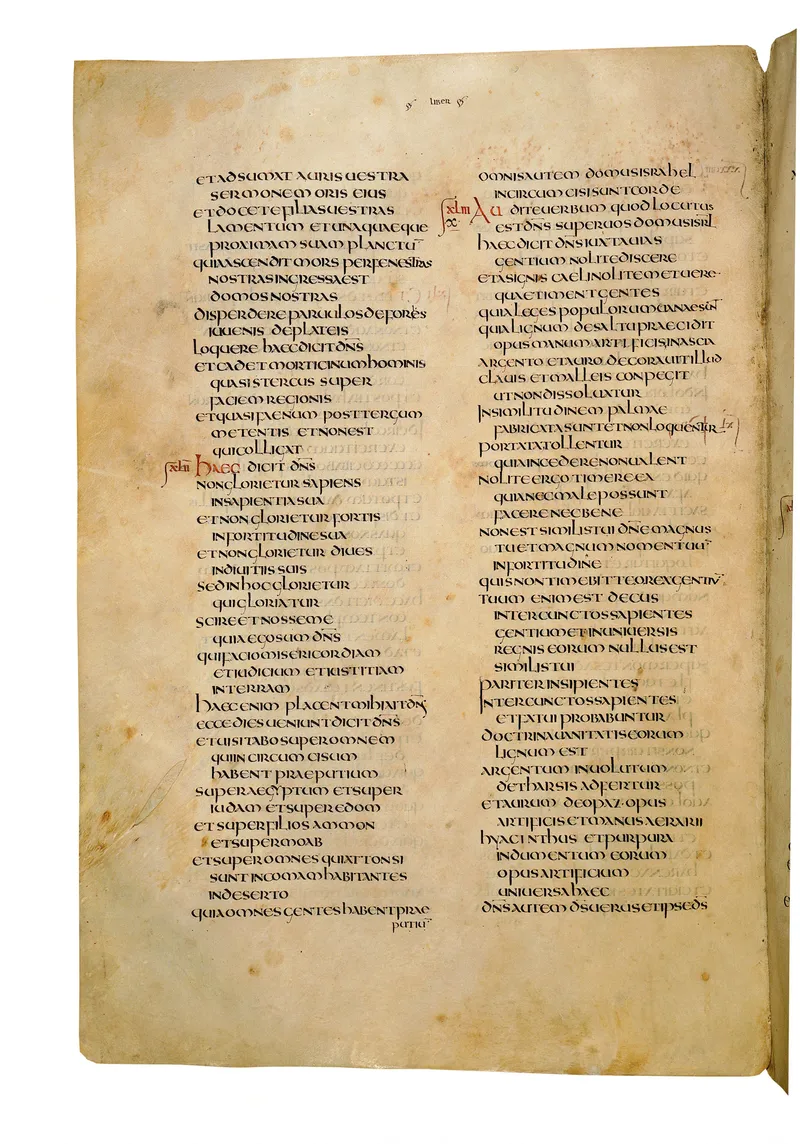 LIBER
ETADSUMAT AURIS UESTRA
SERMONEM ORIS EIUS
ETDOCETE FILIAS UESTRAS
LAMENTUM ETUNAQUAEQUE
PROXIMAM SUAM PLANCTU̅
QUIAASCENDIT MORS PERFENESTRAS
NOSTRAS INGRESSA EST
DOMOS NOSTRAS
DISPERDERE PARUULOS DEFORIS
IUUENIS DEPLATEIS
LOQUERE HAECDICIT DN̅S
ETCADET MORTICINUM HOMINIS
QUASI STERCUS SUPER
FACIEM REGIONIS
ETQUASI FAENUM POSTTERGUM
METENTIS ETNONEST
QUICOLLIGAT
XLII HAEC DICIT DN̅S
NONGLORIETUR SAPIENS
INSAPIENTIA SUA
ETNONGLORIETUR FORTIS
INFORTITUDINE SUA
ETNONGLORIETUR DIUES
INDIUITIIS SUIS
SEDINHOC GLORIETUR
QUIGLORIATUR
SCIRE ETNOSSE ME
QUIAEGOSUM DN̅S
QUIFACIO MISERICORDIAM
ETIUDICIUM ETIUSTITIAM
INTERRAM
HAECENIM PLACENT MIHI AIT DN̅S
ECCEDIES UENIUNT DICIT DN̅S
ETUISITABO SUPEROMNEM
QUIINCIRCUMCISUM
HABENT PRAEPUTIUM
SUPERAEGYPTUM ETSUPER
IUDAM ETSUPEREDOM
ETSUPERFILIOS AMMON
ETSUPERMOAB
ETSUPEROMNES QUIATTONSI
SUNTINCOMAM HABITANTES
INDESERTO
QUIAOMNES GENTES HABENTPRAE
PUTIU̅
OMNISAUTEM DOMUSISRAHEL
INCIRCUMCISISUNTCORDE
XLIII AUDITEUERBUM QUOD LOCUTUS
X ESTDN̅S SUPERUOS DOMUSISRL
HAECDICIT DN̅S IUXTAUIAS
GENTIUM NOLITEDISCERE
ETASIGNIS CAELI NOLITEMETUERE
QUAETIMENTGENTES
QUIALEGES POPULORUMUANAESUNT
QUIALIGNUM DESALTUPRAECIDIT
OPUSMANUM ARTIFICISINASCIA
ARGENTO ETAURO DECORAUITILLUD
CLAUIS ETMALLEIS CONPEGIT
UTNONDISSOLUATUR
INSIMILITUDINEM PALMAE
FABRICATASUNTETNONLOQUENTUR
PORTATATOLLENTUR
QUIAINCEDERENONUALENT
NOLITEERGO TIMEREEA
QUIANECMALEPOSSUNT
FACERENECBENE
NONEST SIMILISTUI DN̅E MAGNUS
TUETMAGNUM NOMENTUU̅
INFORTITUDINE
QUISNONTIMEBITTEOREXGENTIU̅
TUUM ENIMEST DECUS
INTERCUNCTOSSAPIENTES
GENTIUMETINUNIUERSIS
REGNIS EORUM NULLUSEST
SIMILISTUI
PARITERINSIPIENTES
INTERCUNCTOSSAPIENTES
ETFATUI PROBABUNTUR
DOCTRINAUANITATISEORUM
LIGNUM EST
ARGENTUM INUOLUTUM
DETHARSIS ADFERTUR
ETAURUM DEOPAZ·OPUS
ARTIFICISETMANUSAERARII
HYACINTHUS ETPURPURA
INDUMENTUM EORUM
OPUSARTIFICIUM
UNIUERSAHAEC
DN̅SAUTEM DS̅UERUSETIPSEDS̅